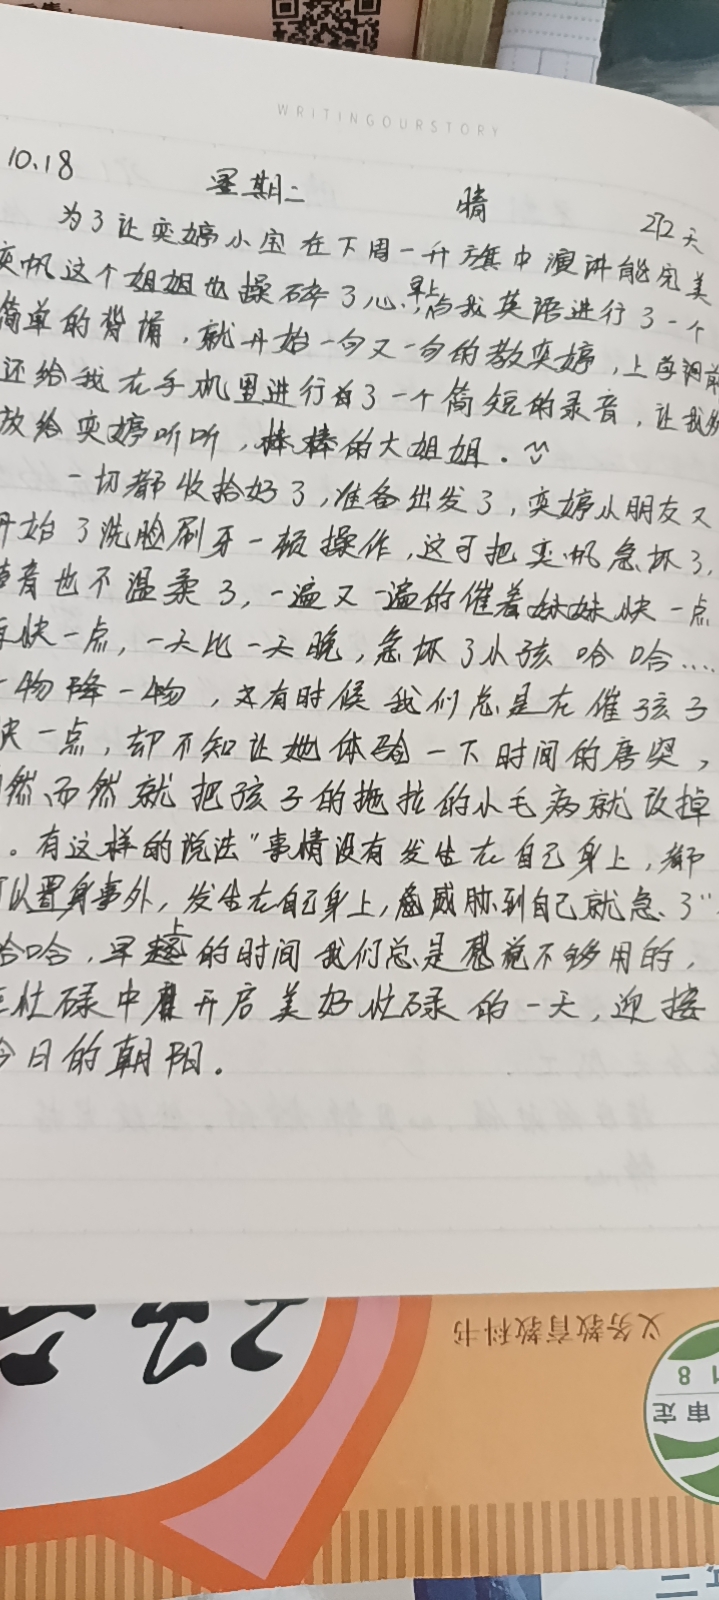 WRITINGOURSTORY
10.18 星期二 晴 212天
为了让奕婷小宝在下周一升旗中演讲能完美
奕帆这个姐姐也操碎了心,早上给我英语进行了一个
简单的背诵,就开始一句又一句的教奕婷,上学前
还给我在手机里进行了一个简短的录音,让我
放给奕婷听听,棒棒的大姐姐。
一切都收拾好了,准备出发了,奕婷从朋友又
开始了洗脸刷牙一顿操作,这可把奕帆急坏了,
声音也不温柔了,一遍又一遍的催着妹妹快一点
再快一点,一天比一天晚,急坏了小孩哈哈....
一物降一物,有时候我们总是在催孩子
快一点,却不知让她体验一下时间的唐突,
自然而然就把孩子的拖拉的小毛病就改掉
。有这样的说法"事情没有发生在自己身上,都
可以置身事外,发生在自己身上,威胁到自己就急了"
哈哈,早上的时间我们总是感觉不够用的,
在忙碌中开启美好忙碌的一天,迎接
今日的朝阳.
义务教育教科书
审定